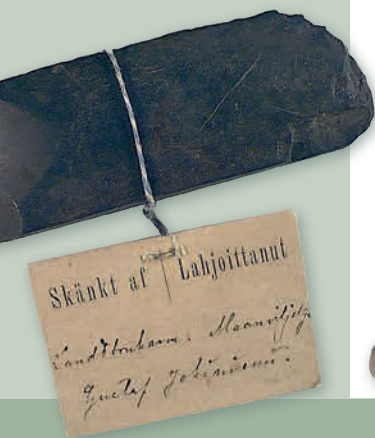 Skänkt af Lahjoittanut
Landtbrukaren. Maanviljelijä
Gustaf